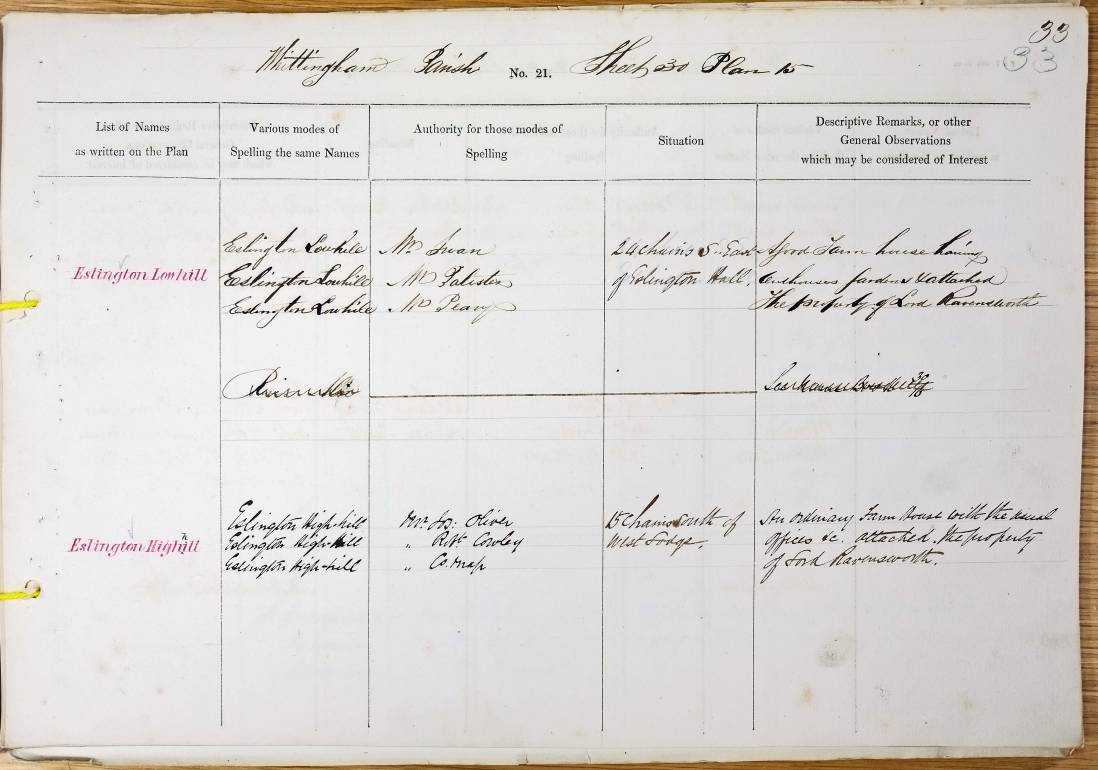 33
33
Whittingham Parish No. 21. Sheet 30 Plan 15
List of Names
as written on the Plan
Various modes of
Spelling the same Names
Authority for those modes of
Spelling
Situation
Descriptive Remarks, or other
General Observations
which may be considered of Interest
Eslington Lowhill
Eslington Lowhill
Eslington Lowhill
Eslington Lowhill
Mr. Swan
Mr
Mr
24 chains S. East
of Eslington Hall.
A good Farm house having
Outhouses gardens &c attached
The property of Lord Ravensworth
Eslington Highhill
Eslington High-hill
Eslington High-hill
Eslington High-hill
Mr. Jos: Oliver
„ Robt. Cowley
„ Co. Map
15 chains South of
West Lodge.
An ordinary Farm House with the usual
offices &c. attached. the property
of Lord Ravensworth.